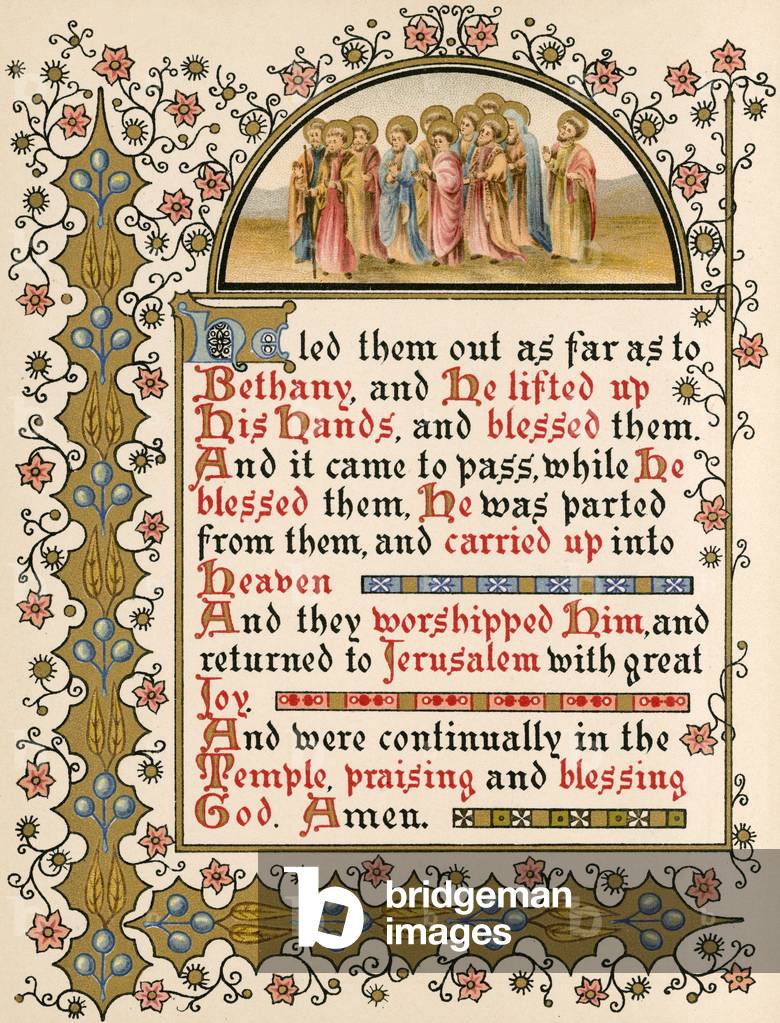 He led them out as far as to
Bethany, and He lifted up
His Hands, and blessed them.
And it came to pass, while He
blessed them, He was parted
from them, and carried up into
Heaven
And they worshipped Him, and
returned to Jerusalem with great
Joy.
And were continually in the
Temple, praising and blessing
God. Amen.
b bridgeman
images